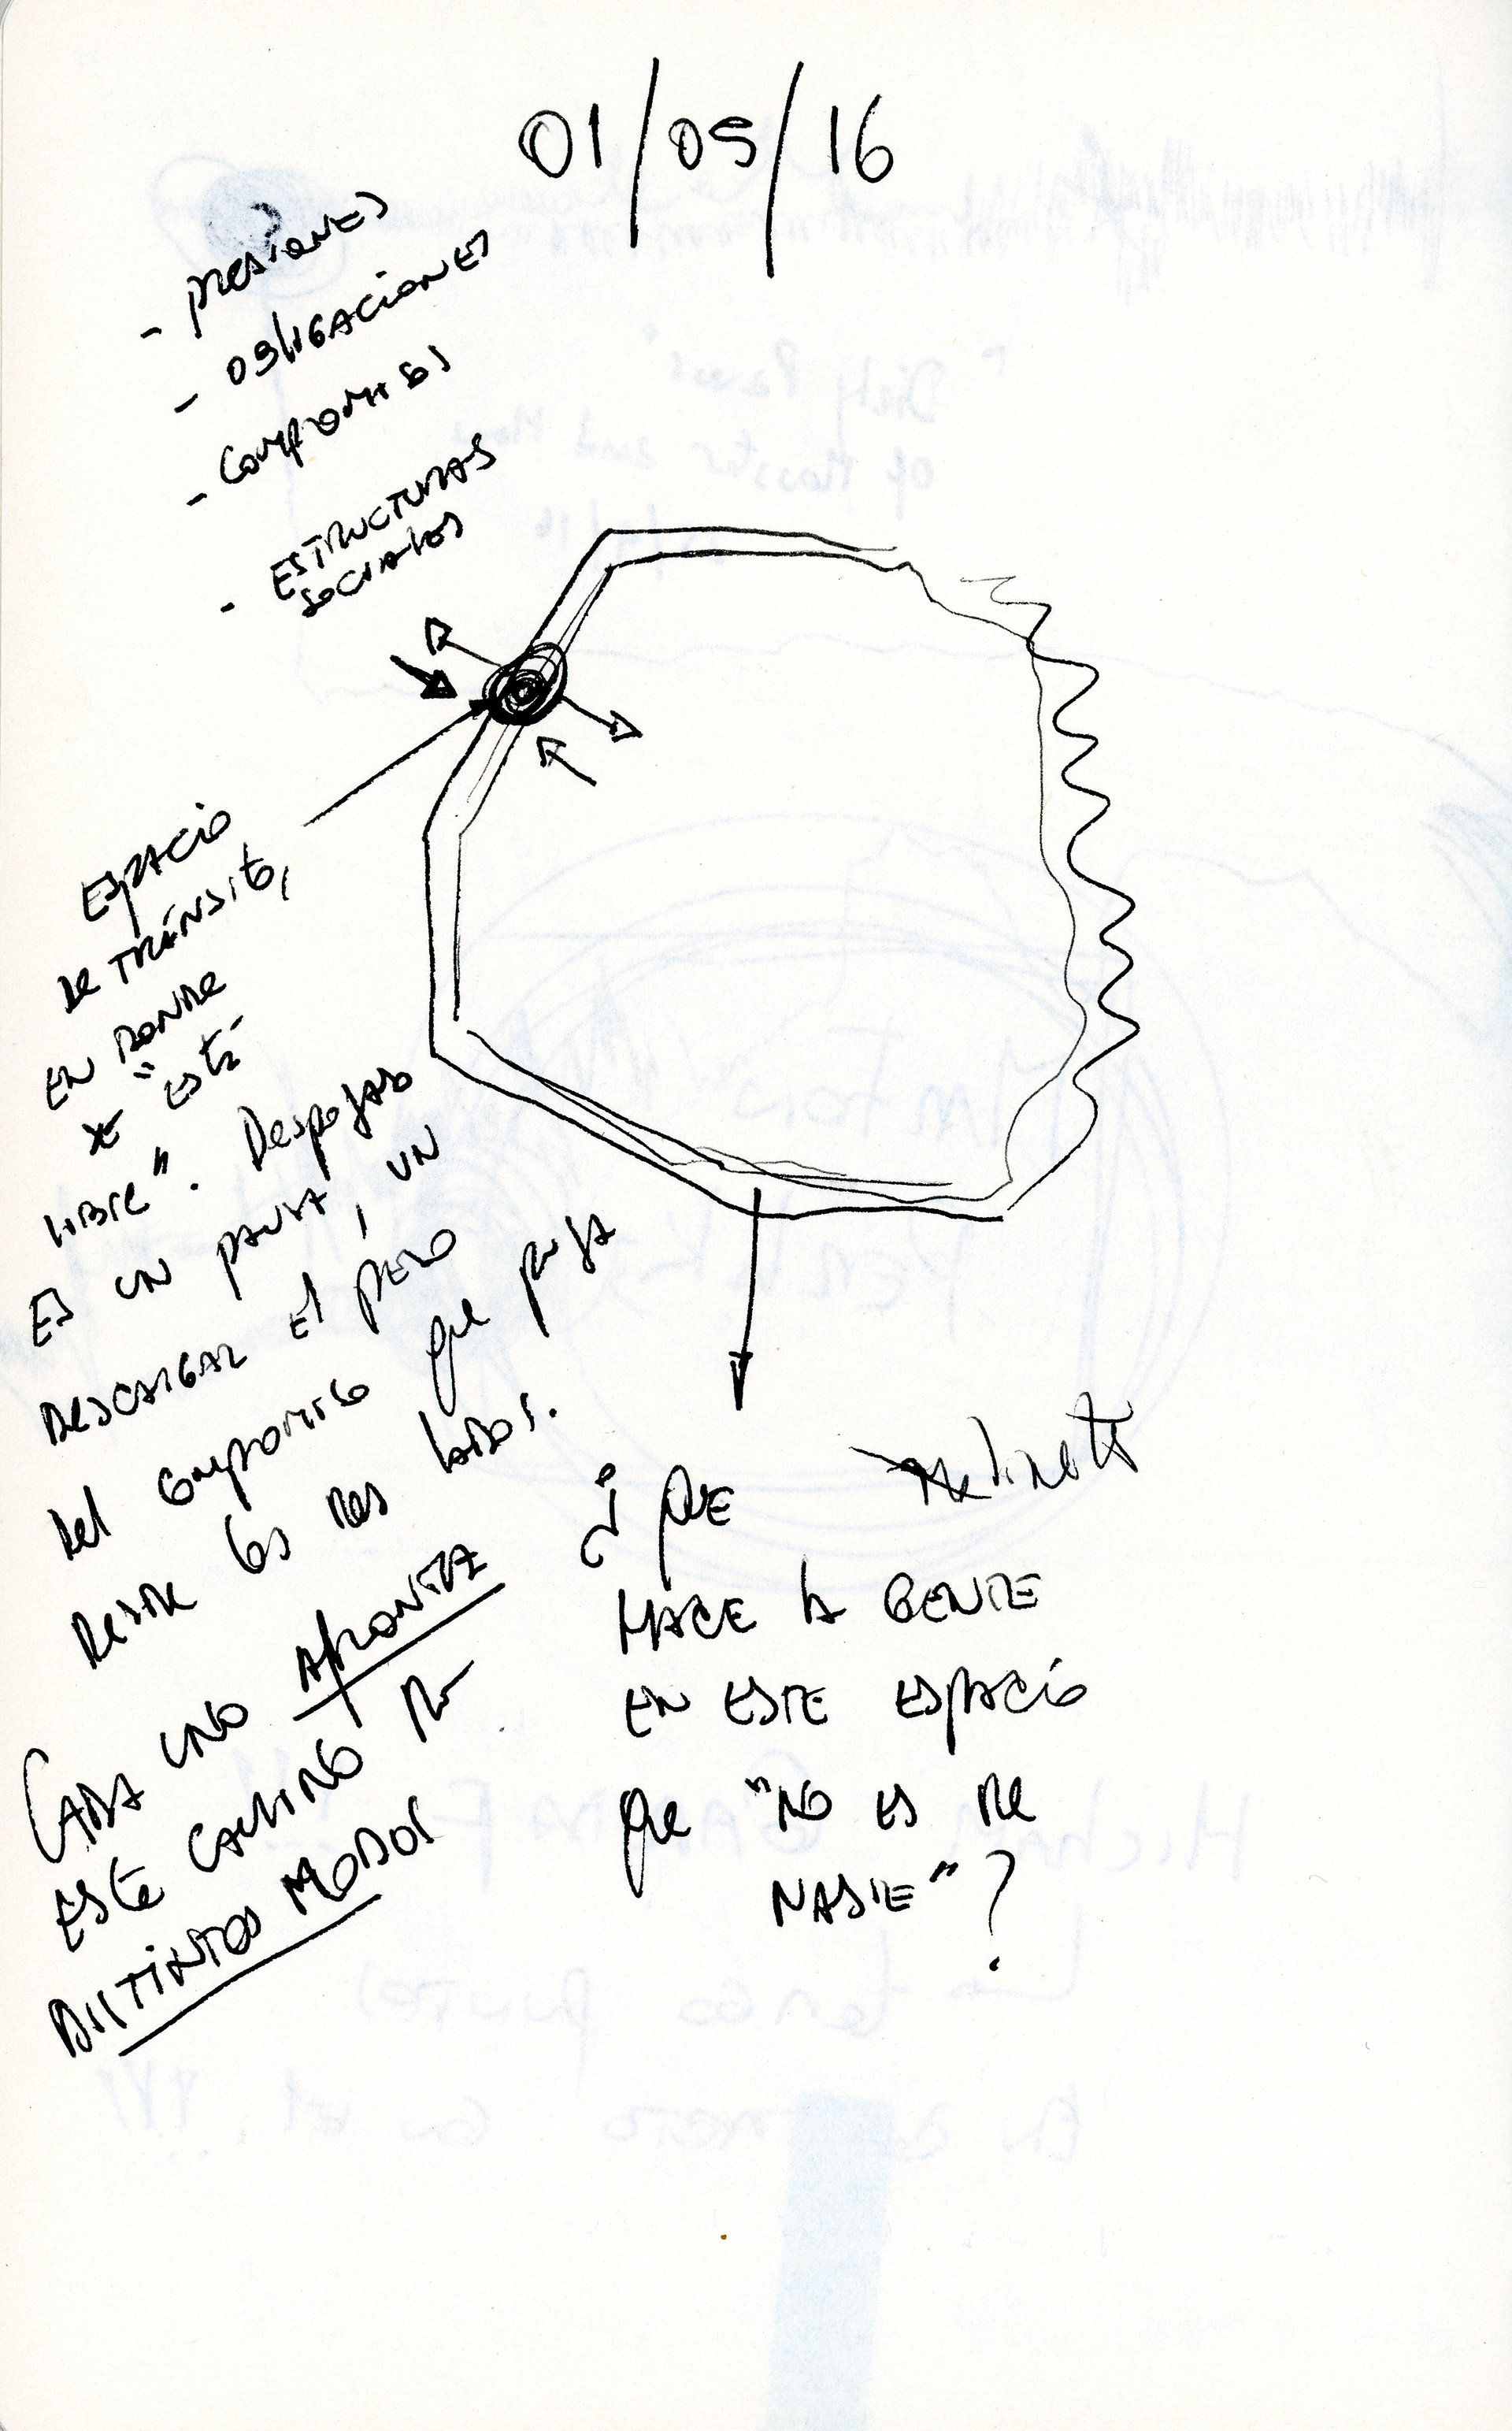 01/05/16
- presiones
- obligaciones
- compromisos
- ESTRUCTURAS
sociales
Espacio
de tránsito,
en donde
se "está
libre". Despojado
Es un pausa, un
descargar el peso
del compromiso que puja
desde los dos lados.
Cada uno afronta
este camino de
distintos modos
¿Que
HACE la GENTE
EN ESTE ESPACIO
que "NO ES DE
NADIE"?